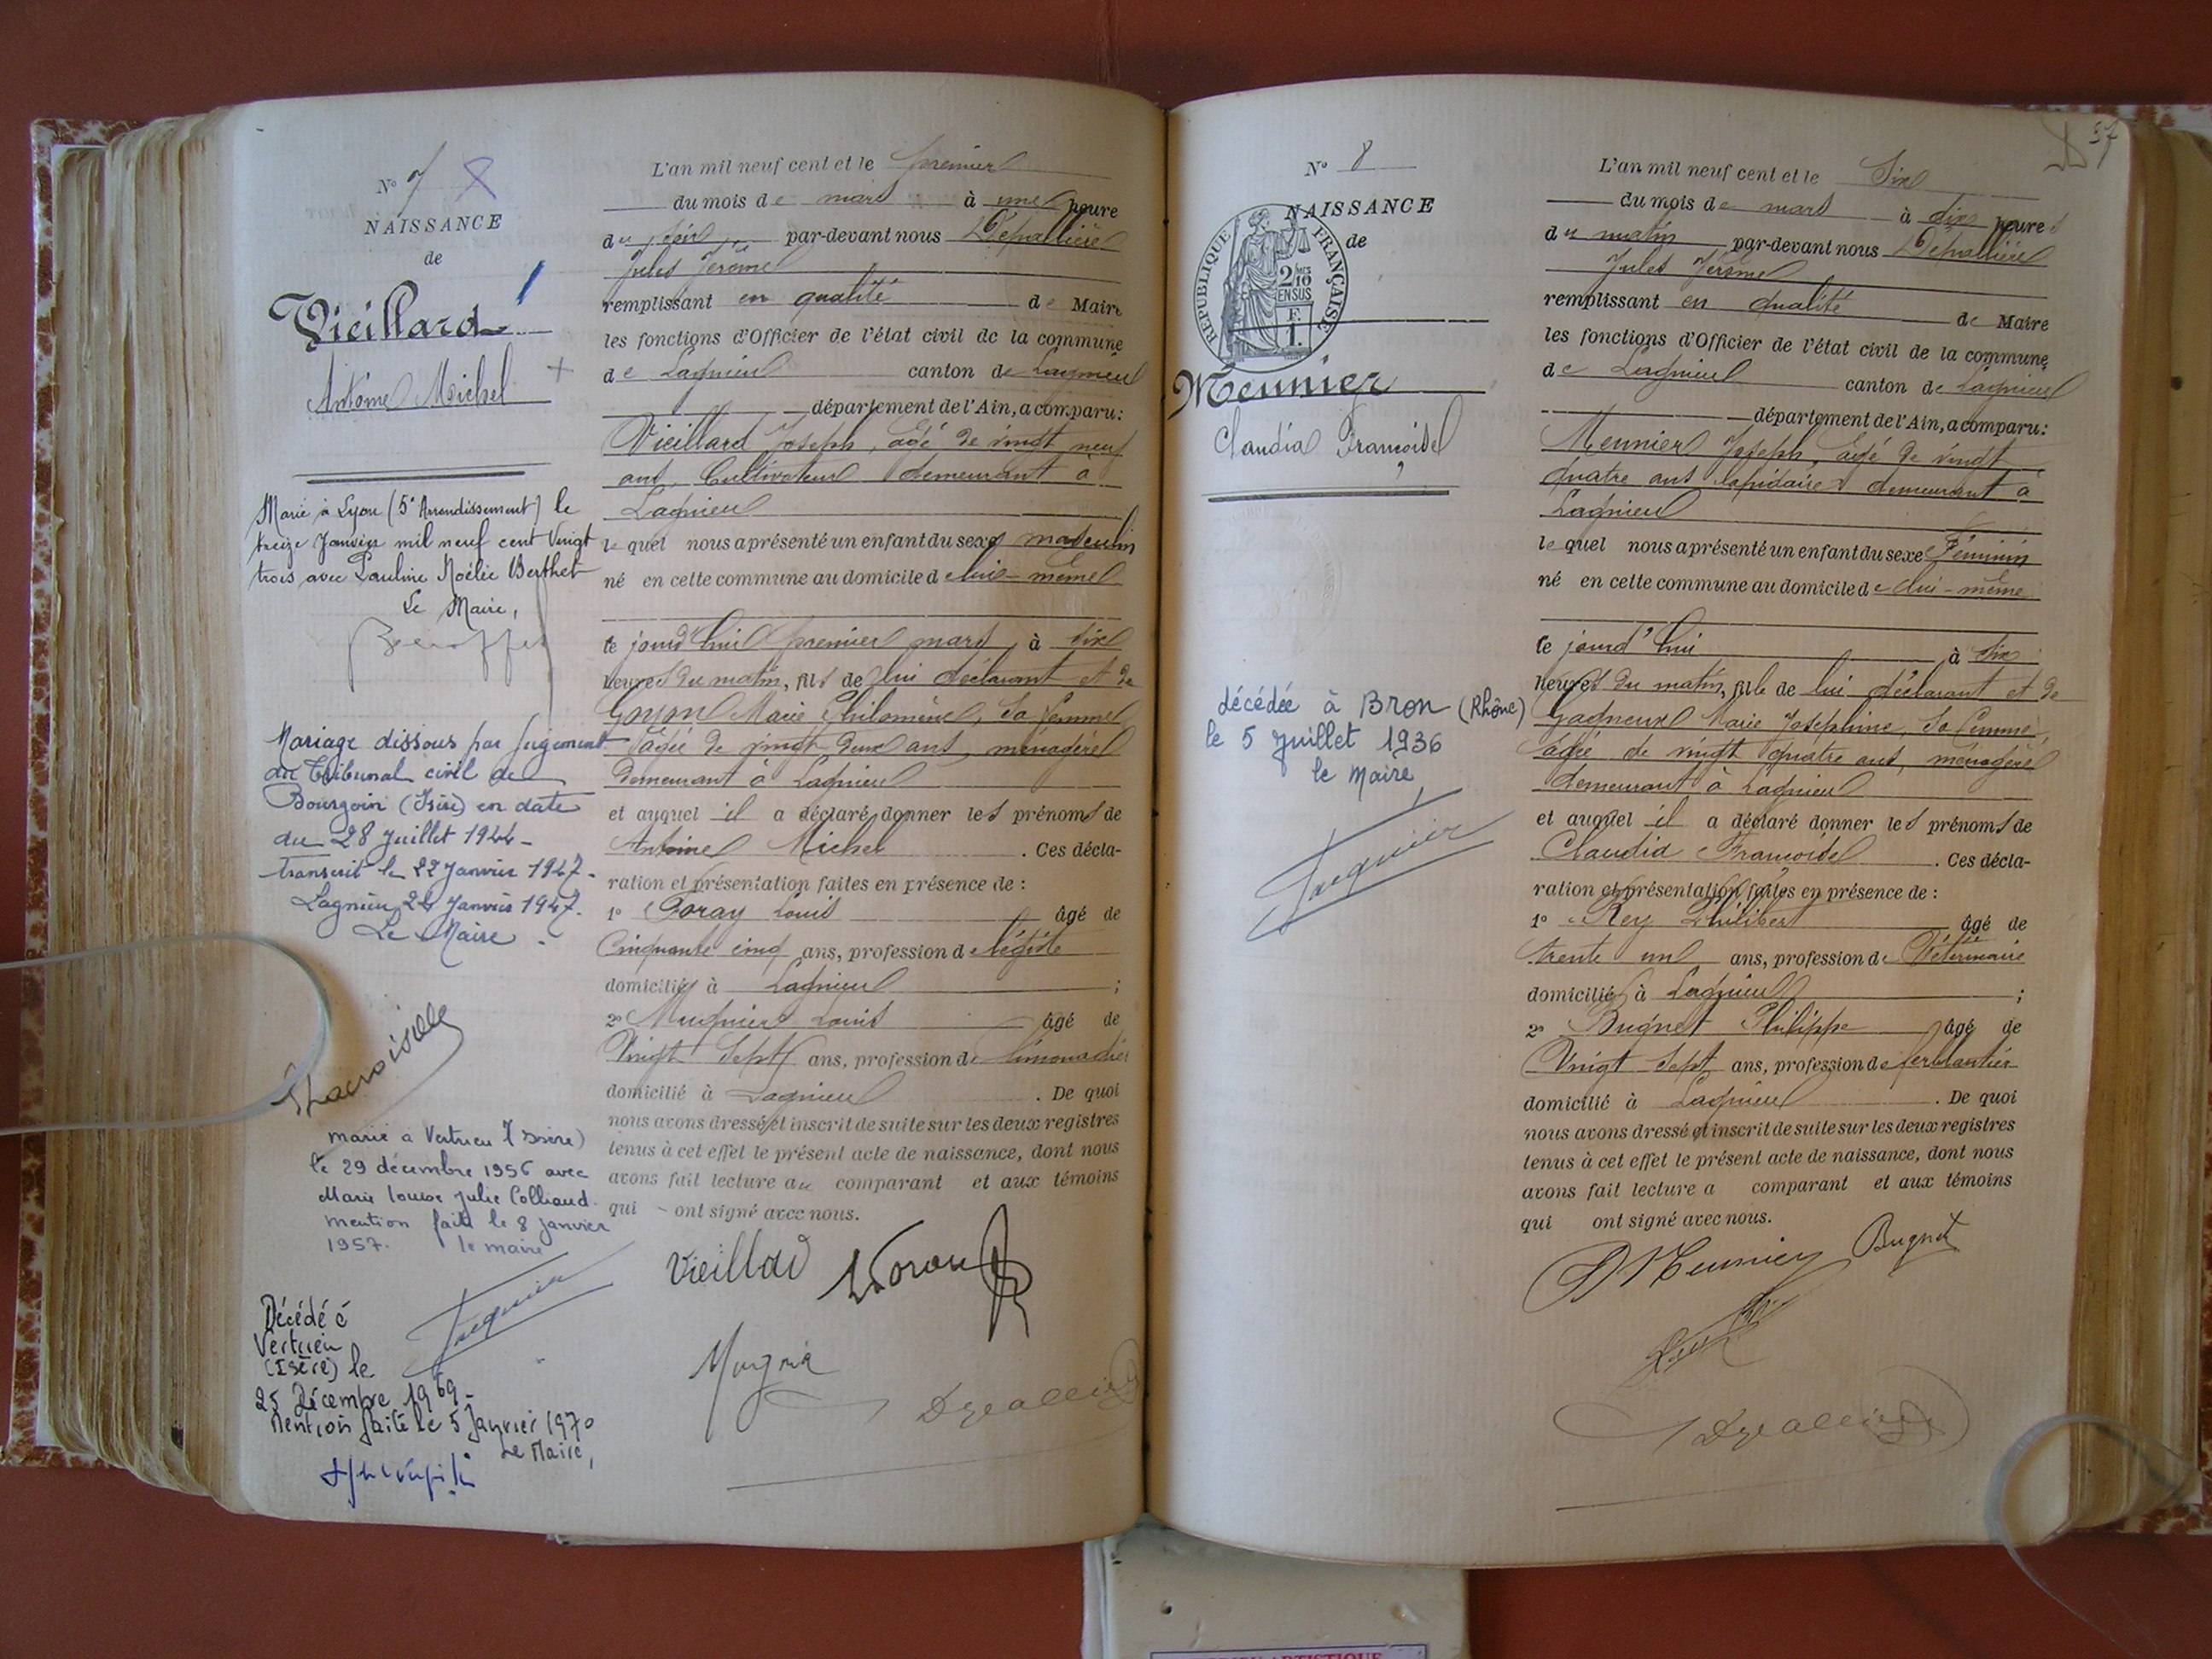 N° 7
NAISSANCE
de
Vieillard
Antoine Michel
Marié à Lyon (5e Arrondissement) le
treize Janvier mil neuf cent vingt
trois avec Pauline Noélie Berthet
Le Maire,
Mariage dissous par jugement
du Tribunal civil de
Bourgoin (Isère) en date
du 28 Juillet 1944 -
transcrit le 22 Janvier 1947 -
Lagnieu 24 Janvier 1947.
Le Maire.
marié à Vertrieu (Isère)
le 29 décembre 1956 avec
Marie Louise Julie Colliaud.
mention faite le 8 janvier
1957. le maire
Décédé à
Vertrieu
(Isère) le
25 Décembre 1969 -
Mention faite le 5 Janvier 1970
Le Maire,
L'an mil neuf cent et le premier
du mois de mars à une heure
du soir par-devant nous Dépallière
Jules Jérôme
remplissant en qualité de Maire
les fonctions d'Officier de l'état civil de la commune
de Lagnieu canton de Lagnieu
département de l'Ain, a comparu:
Vieillard Joseph, âgé de vingt neuf
ans, Cultivateur demeurant à
Lagnieu
lequel nous a présenté un enfant du sexe masculin
né en cette commune au domicile de lui-même
ce jourd'hui premier mars à six
heures du matin, fils de lui déclarant et de
Goyon Marie Philomène, sa femme
âgée de vingt deux ans, ménagère
demeurant à Lagnieu
et auquel il a déclaré donner les prénoms de
Antoine Michel . Ces décla-
ration et présentation faites en présence de :
1° Foray Louis âgé de
Cinquante cinq ans, profession de
domicilié à Lagnieu ;
2° Mugnier Louis âgé de
Vingt Sept ans, profession de limonadier
domicilié à Lagnieu . De quoi
nous avons dressé et inscrit de suite sur les deux registres
tenus à cet effet le présent acte de naissance, dont nous
avons fait lecture au comparant et aux témoins
qui ont signé avec nous.
Vieillard
37
N° 8
NAISSANCE
de
RÉPUBLIQUE FRANÇAISE
Meunier
Claudia Françoise
décédée à Bron (Rhône)
le 5 Juillet 1936
le Maire,
L'an mil neuf cent et le Six
du mois de mars à dix heures
du matin par-devant nous Dépallière
Jules Jérôme
remplissant en qualité de Maire
les fonctions d'Officier de l'état civil de la commune
de Lagnieu canton de Lagnieu
département de l'Ain, a comparu:
Meunier Joseph, âgé de vingt
quatre ans lapidaire demeurant à
Lagnieu
lequel nous a présenté un enfant du sexe Féminin
né en cette commune au domicile de lui-même
ce jourd'hui à six
heures du matin, fille de lui déclarant et de
Gagneux Marie Joséphine, sa femme,
âgée de vingt quatre ans, ménagère
demeurant à Lagnieu
et auquel il a déclaré donner les prénoms de
Claudia Françoise . Ces décla-
ration et présentation faites en présence de :
1° Rey Philibert âgé de
trente un ans, profession de Vétérinaire
domicilié à Lagnieu ;
2° Bugnet Philippe âgé de
Vingt sept ans, profession de ferblantier
domicilié à Lagnieu . De quoi
nous avons dressé et inscrit de suite sur les deux registres
tenus à cet effet le présent acte de naissance, dont nous
avons fait lecture a comparant et aux témoins
qui ont signé avec nous.
Meunier Bugnet